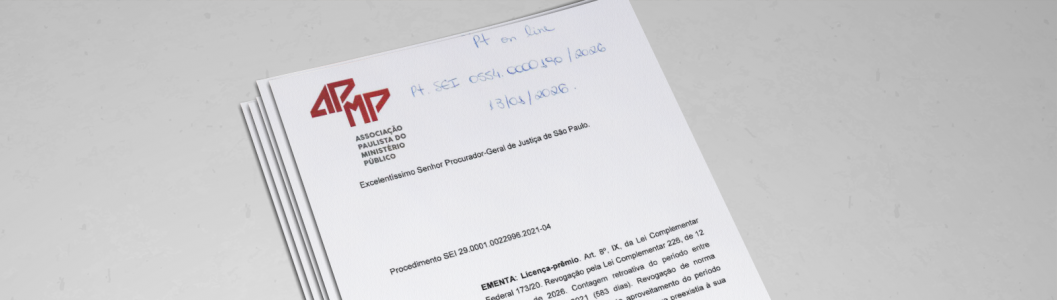 Pt on line
Pt. SEI 0554.0000190/2026
13/01/2026.
APMP
ASSOCIAÇÃO
PAULISTA DO
MINISTÉRIO
PÚBLICO
Excelentíssimo Senhor Procurador-Geral de Justiça de São Paulo.
Procedimento SEI 29.0001.0022996.2021-04
EMENTA: Licença-prêmio. Art. 8º, IX, da Lei Complementar
Federal 173/20. Revogação pela Lei Complementar 226, de 12
de 2026. Contagem retroativa do período entre
2021 (583 dias). Revogação de norma
aproveitamento do período
preexistia à sua